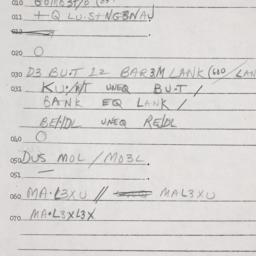 010
011 + Q LU.STNGBNAJ
012
020 O
030 D3 BUT 12 BAR3M LANK (
031 KU:A/T UNEQ BU.T /
BANK EQ LANK /
BEHDL UNEQ RE/DL
040 O
050 DUS MOL / MO3L.
051 —
060 MA.L3XU // MAL3XU
070 MA.L3XL3X